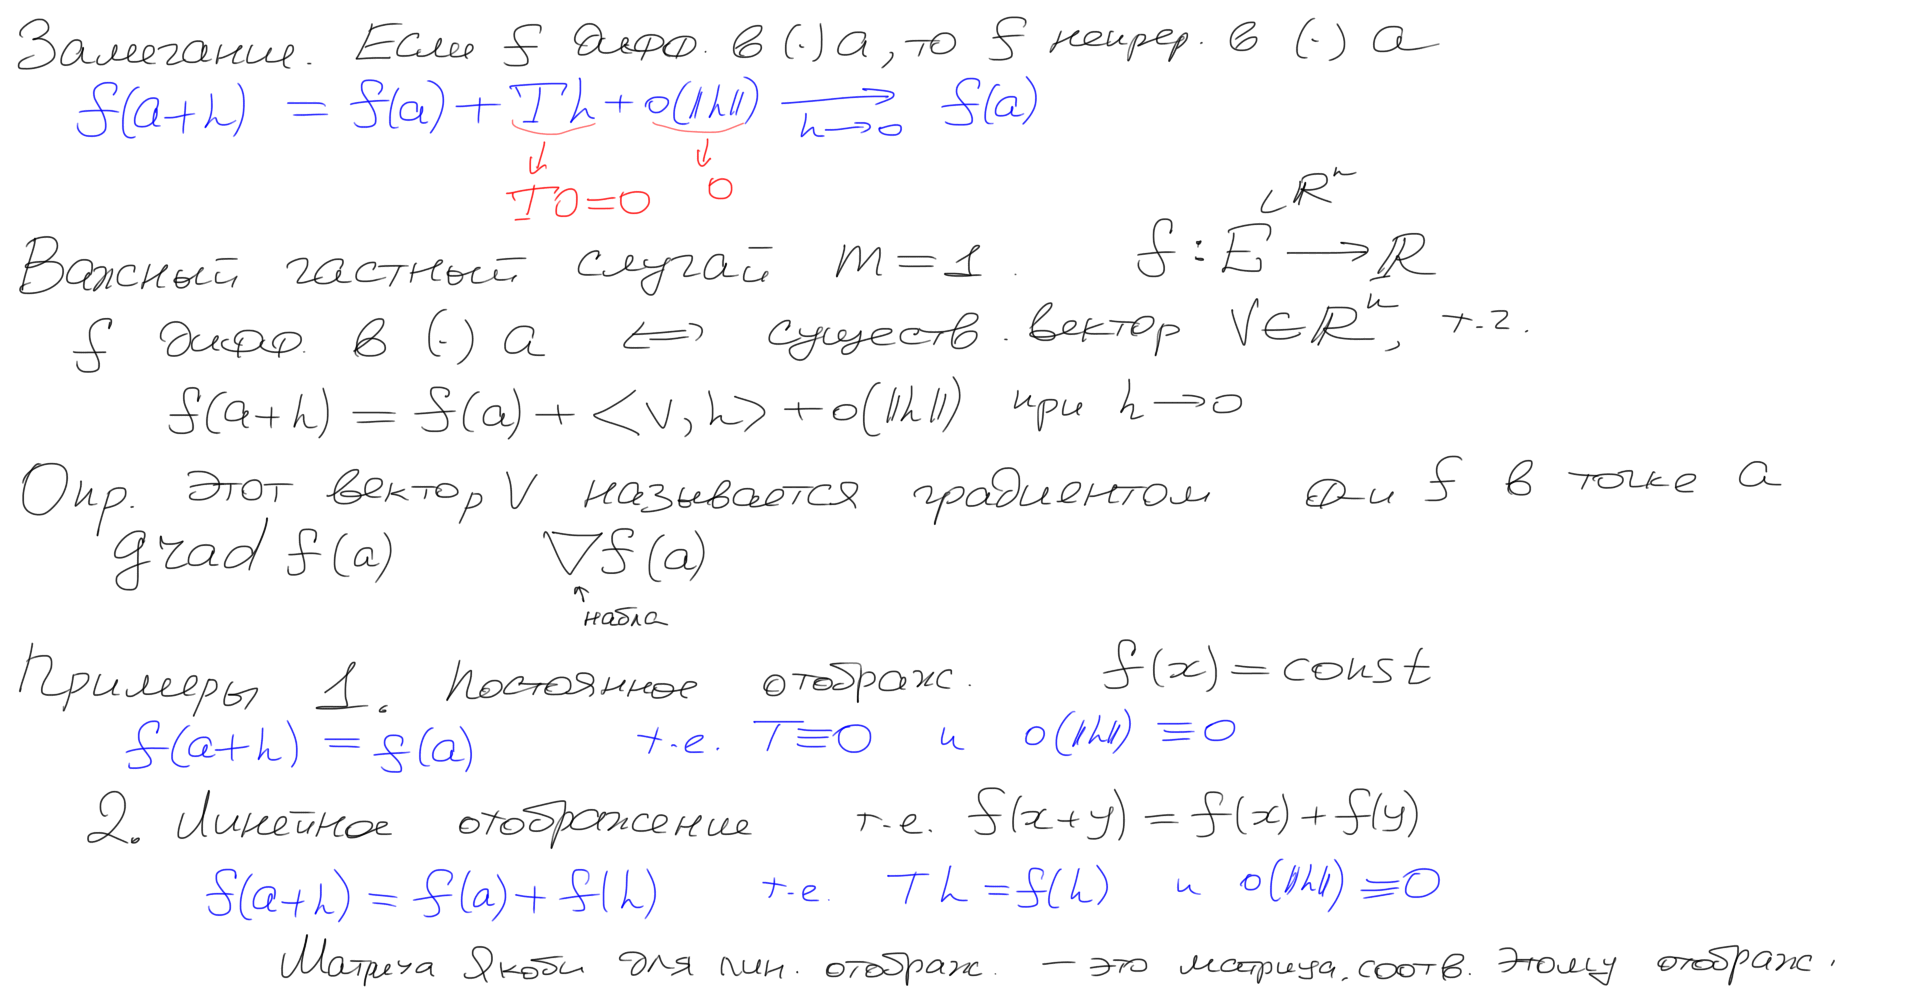 Замечание. Если f дифф. в (·) a, то f непрер. в (·) a
f(a+h) = f(a) + Th + o(||h||) ⟶ f(a)
h→0
↓ ↓
T0=0 0
⊂ ℝⁿ
Важный частный случай m=1. f : E ⟶ ℝ
f дифф. в (·) a ⇔ существ. вектор v∈ℝⁿ, т.ч.
f(a+h) = f(a) + <v, h> + o(||h||) при h→0
Опр. Этот вектор v называется градиентом ф-и f в точке a
grad f(a) ∇f(a)
↑
набла
Примеры 1. Постоянное отображ. f(x) = const
f(a+h) = f(a) т.е. T≡0 и o(||h||) ≡0
2. Линейное отображение т.е. f(x+y) = f(x) + f(y)
f(a+h) = f(a) + f(h) т.е. Th = f(h) и o(||h||) ≡0
Матрица Якоби для лин. отображ. – это матрица, соотв. этому отображ.